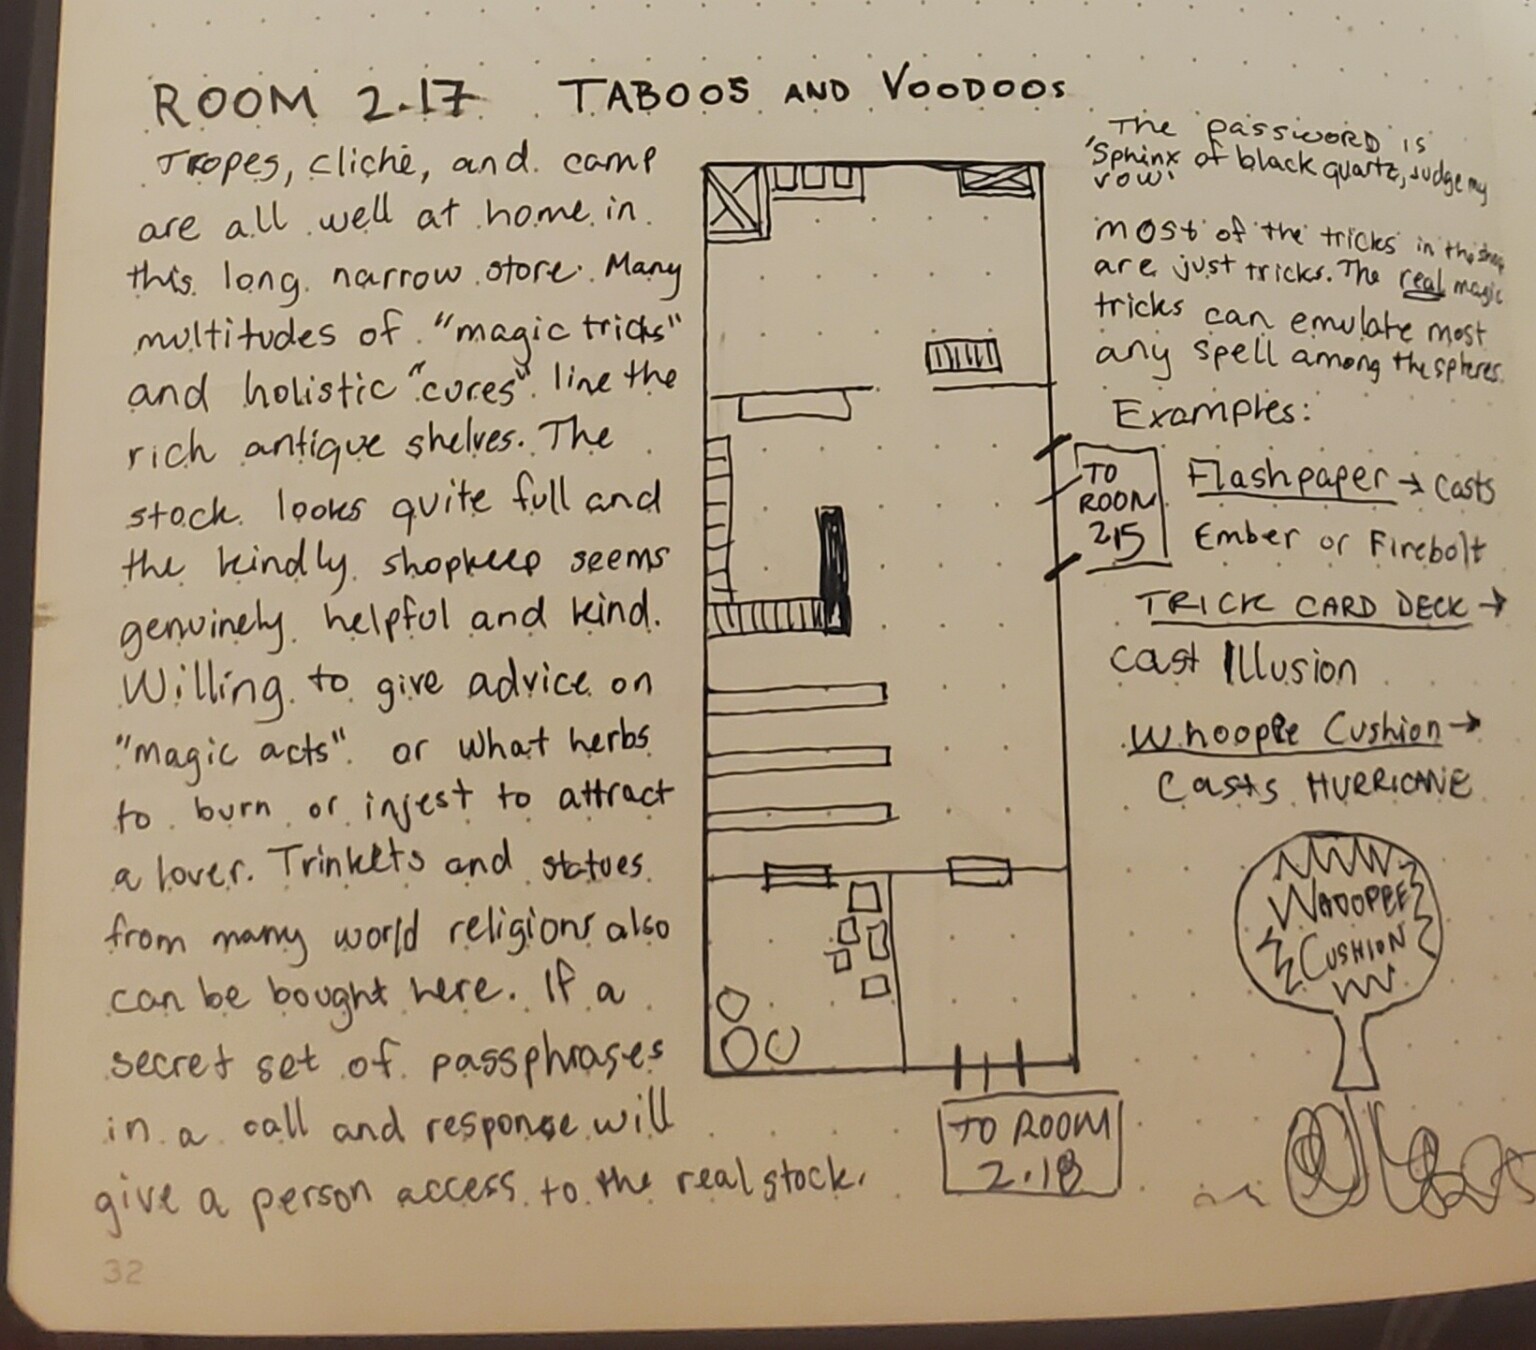 ROOM 2.17 TABOOS AND VOODOOS
Tropes, cliché, and camp
are all well at home in
this long narrow store. Many
multitudes of "magic tricks"
and holistic "cures" line the
rich antique shelves. The
stock looks quite full and
the kindly shopkeep seems
genuinely helpful and kind.
Willing to give advice on
"magic acts" or what herbs
to burn or injest to attract
a lover. Trinkets and statues
from many world religions also
can be bought here. If a
secret set of passphrases
in a call and response will
give a person access to the real stock.
The password is
'Sphinx of black quartz, judge my
vow'
most of the tricks in the shop
are just tricks. The real magic
tricks can emulate most
any spell among the spheres.
Examples:
Flashpaper → casts
Ember or Firebolt
TRICK CARD DECK →
cast Illusion
Whoopee Cushion →
Casts HURRICANE
TO
ROOM
215
WHOOPEE
CUSHION
TO ROOM
2.18
32